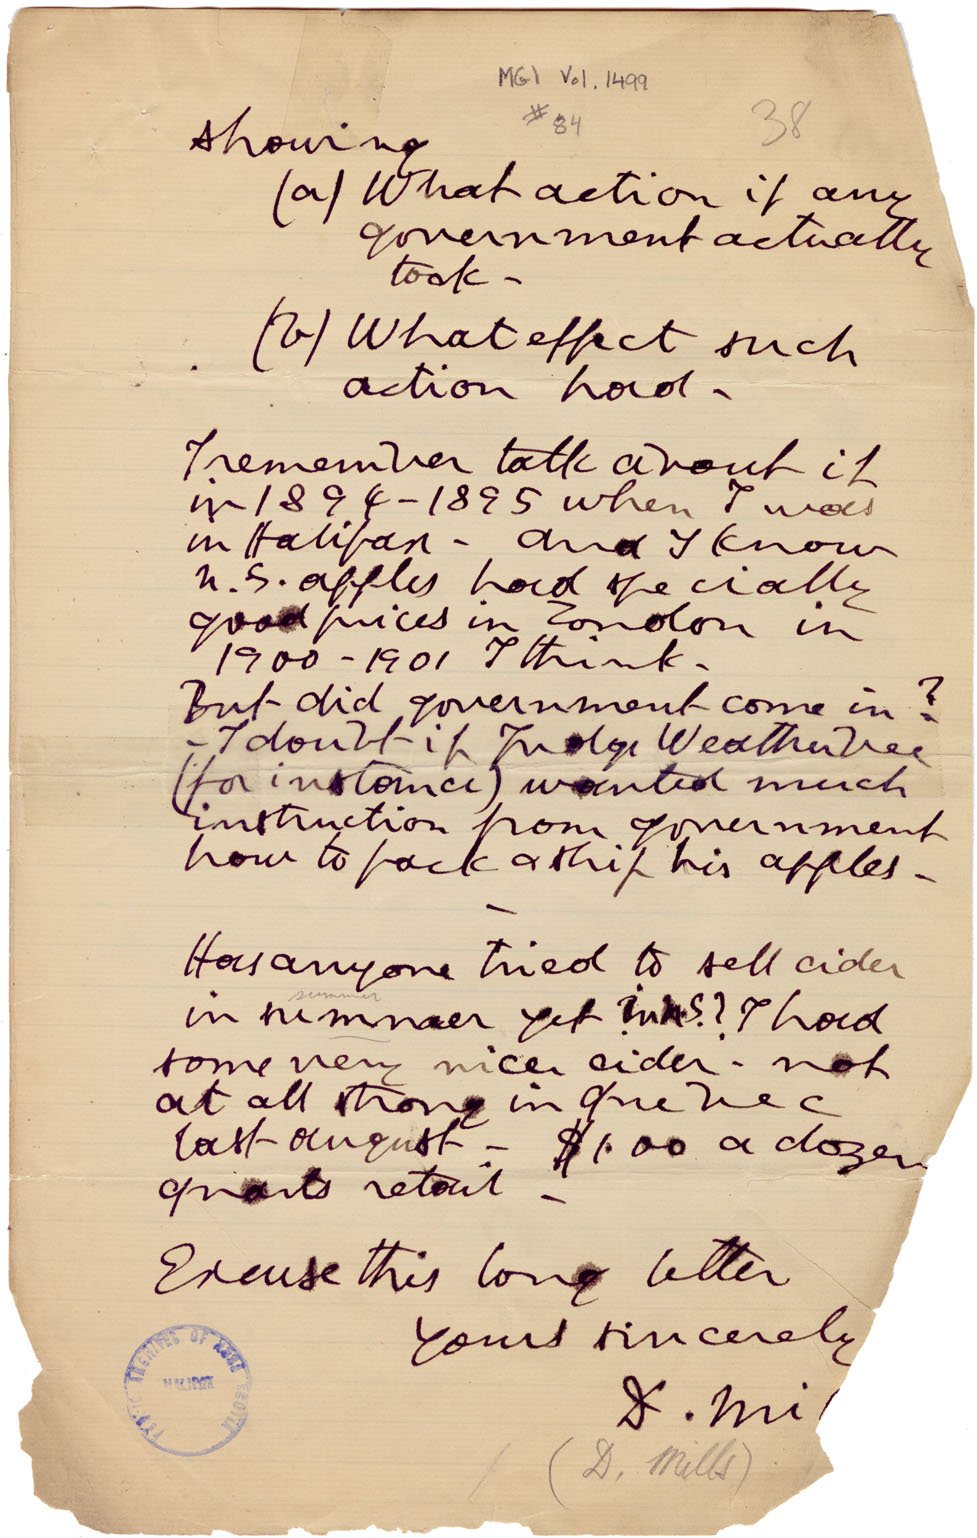 MG1 Vol. 1499
#84
38
showing
(a) What action if any
government actually
took -
(b) What effect such
action had -
I remember talk about it
in 1894-1895 when I was
in Halifax - and I know
N.S. apples had specially
good prices in London in
1900-1901 I think -
But did government come in?
- I doubt if Judge Weatherbee
(for instance) wanted much
instruction from government
how to pack & ship his apples -
-
Has anyone tried to sell cider
summer
in summer yet in N.S.? I had
some very nice cider - not
at all strong in Quebec
last august - $1.00 a dozen
quarts retail -
Excuse this long letter
yours sincerely
D. Mi
(D. Mills)
ARCHIVES OF NOVA SCOTIA
HALIFAX